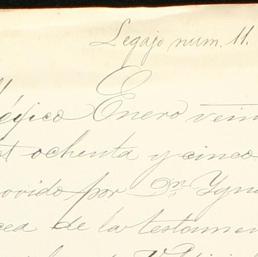 Legajo num. 11.
Mégico Enero vein
ochenta y cinco
ovido por Dn. Ygna
cea de la testamen